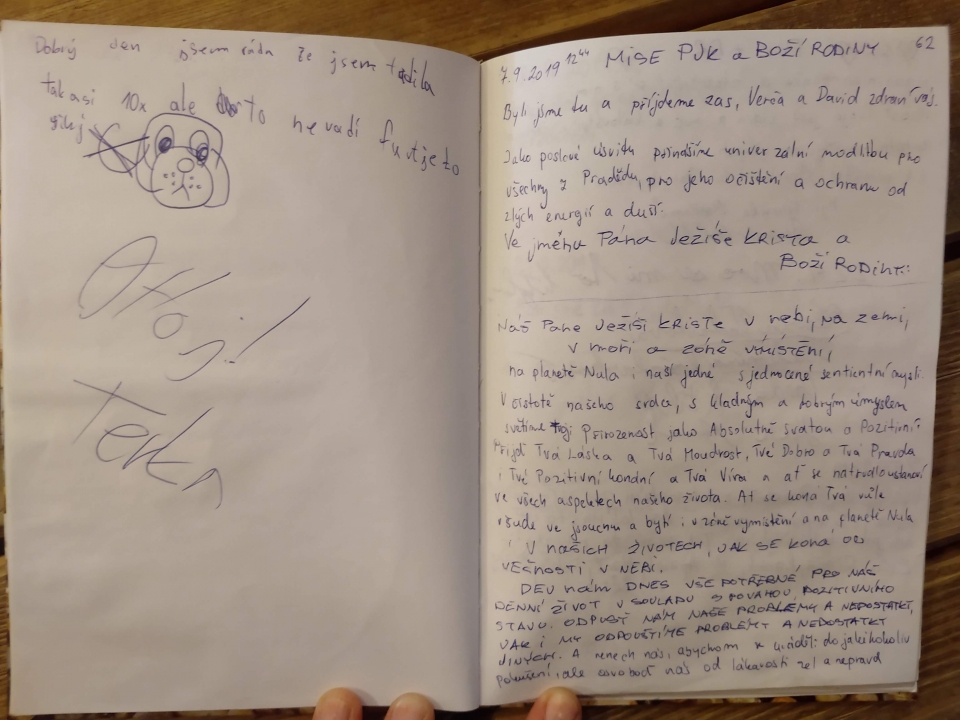 Dobrý den jsem ráda že jsem
takasi 10x ale to nevadí
Ahoj!
Terka
62
7.9.2019 12⁴⁴ MISE PJK a BOŽÍ RODINY
Byli jsme tu a příjdeme zas, Verča a David zdraví vás.
Jako poslové úsvitu přinášíme univerzální modlitbu pro
všechny z Pradědu, pro jeho očištění a ochranu od
zlých energií a duší.
Ve jménu Pána Ježíše Krista a
BOŽÍ RODINY:
NÁŠ Pane JEŽÍŠI KRISTE v nebi, na zemi,
v moři a zóně VYMÍSTĚNÍ,
na planetě Nula i naší jedné sjednocené sentientní mysli.
V čistotě našeho srdce, s kladným a dobrým úmyslem
světíme Tvoji Přirozenost jako Absolutně svatou a Pozitivní.
Přijď Tvá Láska a Tvá Moudrost, Tvé Dobro a Tvá Pravda
i Tvé Pozitivní konání a Tvá Víra a ať se
ve všech aspektech našeho života. Ať se koná Tvá vůle
všude ve jsoucnu a bytí i v zóně vymístění a na planetě Nula
i V NAŠICH ŽIVOTECH, JAK SE KONÁ OD
VĚČNOSTI V NEBI.
DEJ NÁM DNES VŠE POTŘEBNÉ PRO NÁŠ
DENNÍ ŽIVOT V SOULADU S POVAHOU POZITIVNÍHO
STAVU. ODPUSŤ NÁM NAŠE PROBLÉMY A NEDOSTATKY,
JAK I MY ODPOUŠTÍME PROBLÉMY A NEDOSTATKY
JINÝCH. A nenech nás, abychom se uváděli do jakéhokoliv
pokušení, ale osvoboď nás od lákavosti zel a nepravd